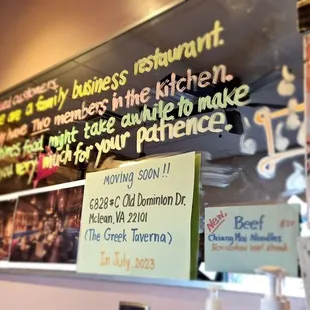 customers.
are a family business restaurant.
have Two members in the kitchen.
food might take awhile to make
very much for your patience.
MOVING SOON !!
6828#C Old Dominion Dr.
Mclean, VA 22101
(The Greek Taverna)
In July, 2023
New Beef
Chiang Mai Noodles